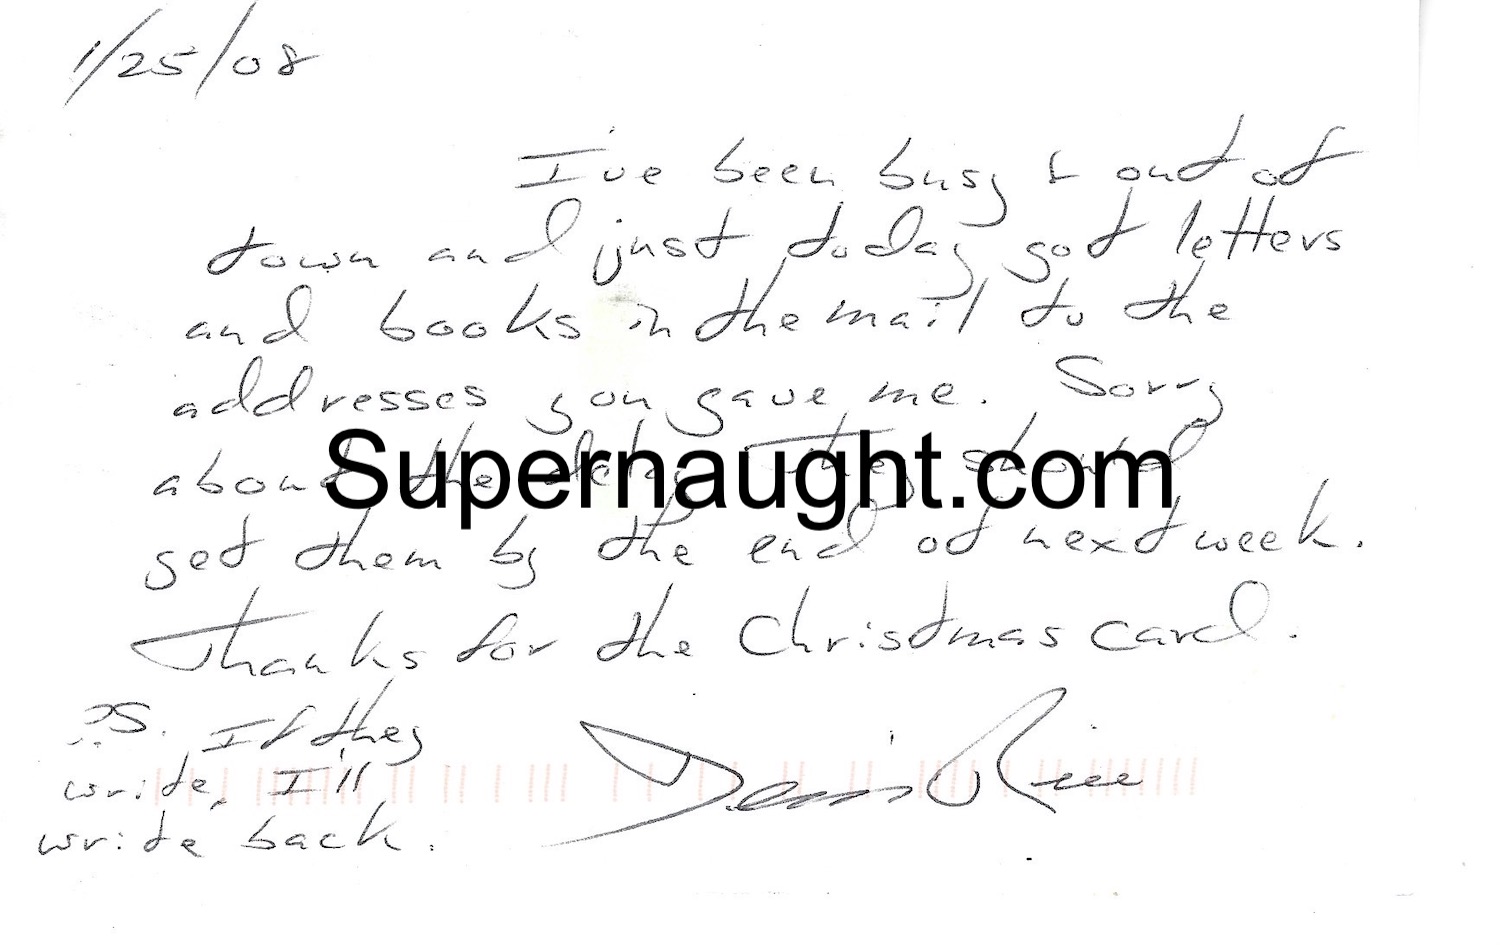 1/25/08
I've been busy & out of
town and just today got letters
and books in the mail to the
addresses you gave me. Sorry
about the delay. They should
Supernaught.com
get them by the end of next week.
Thanks for the Christmas card.
P.S. If they
write, I'll
write back.